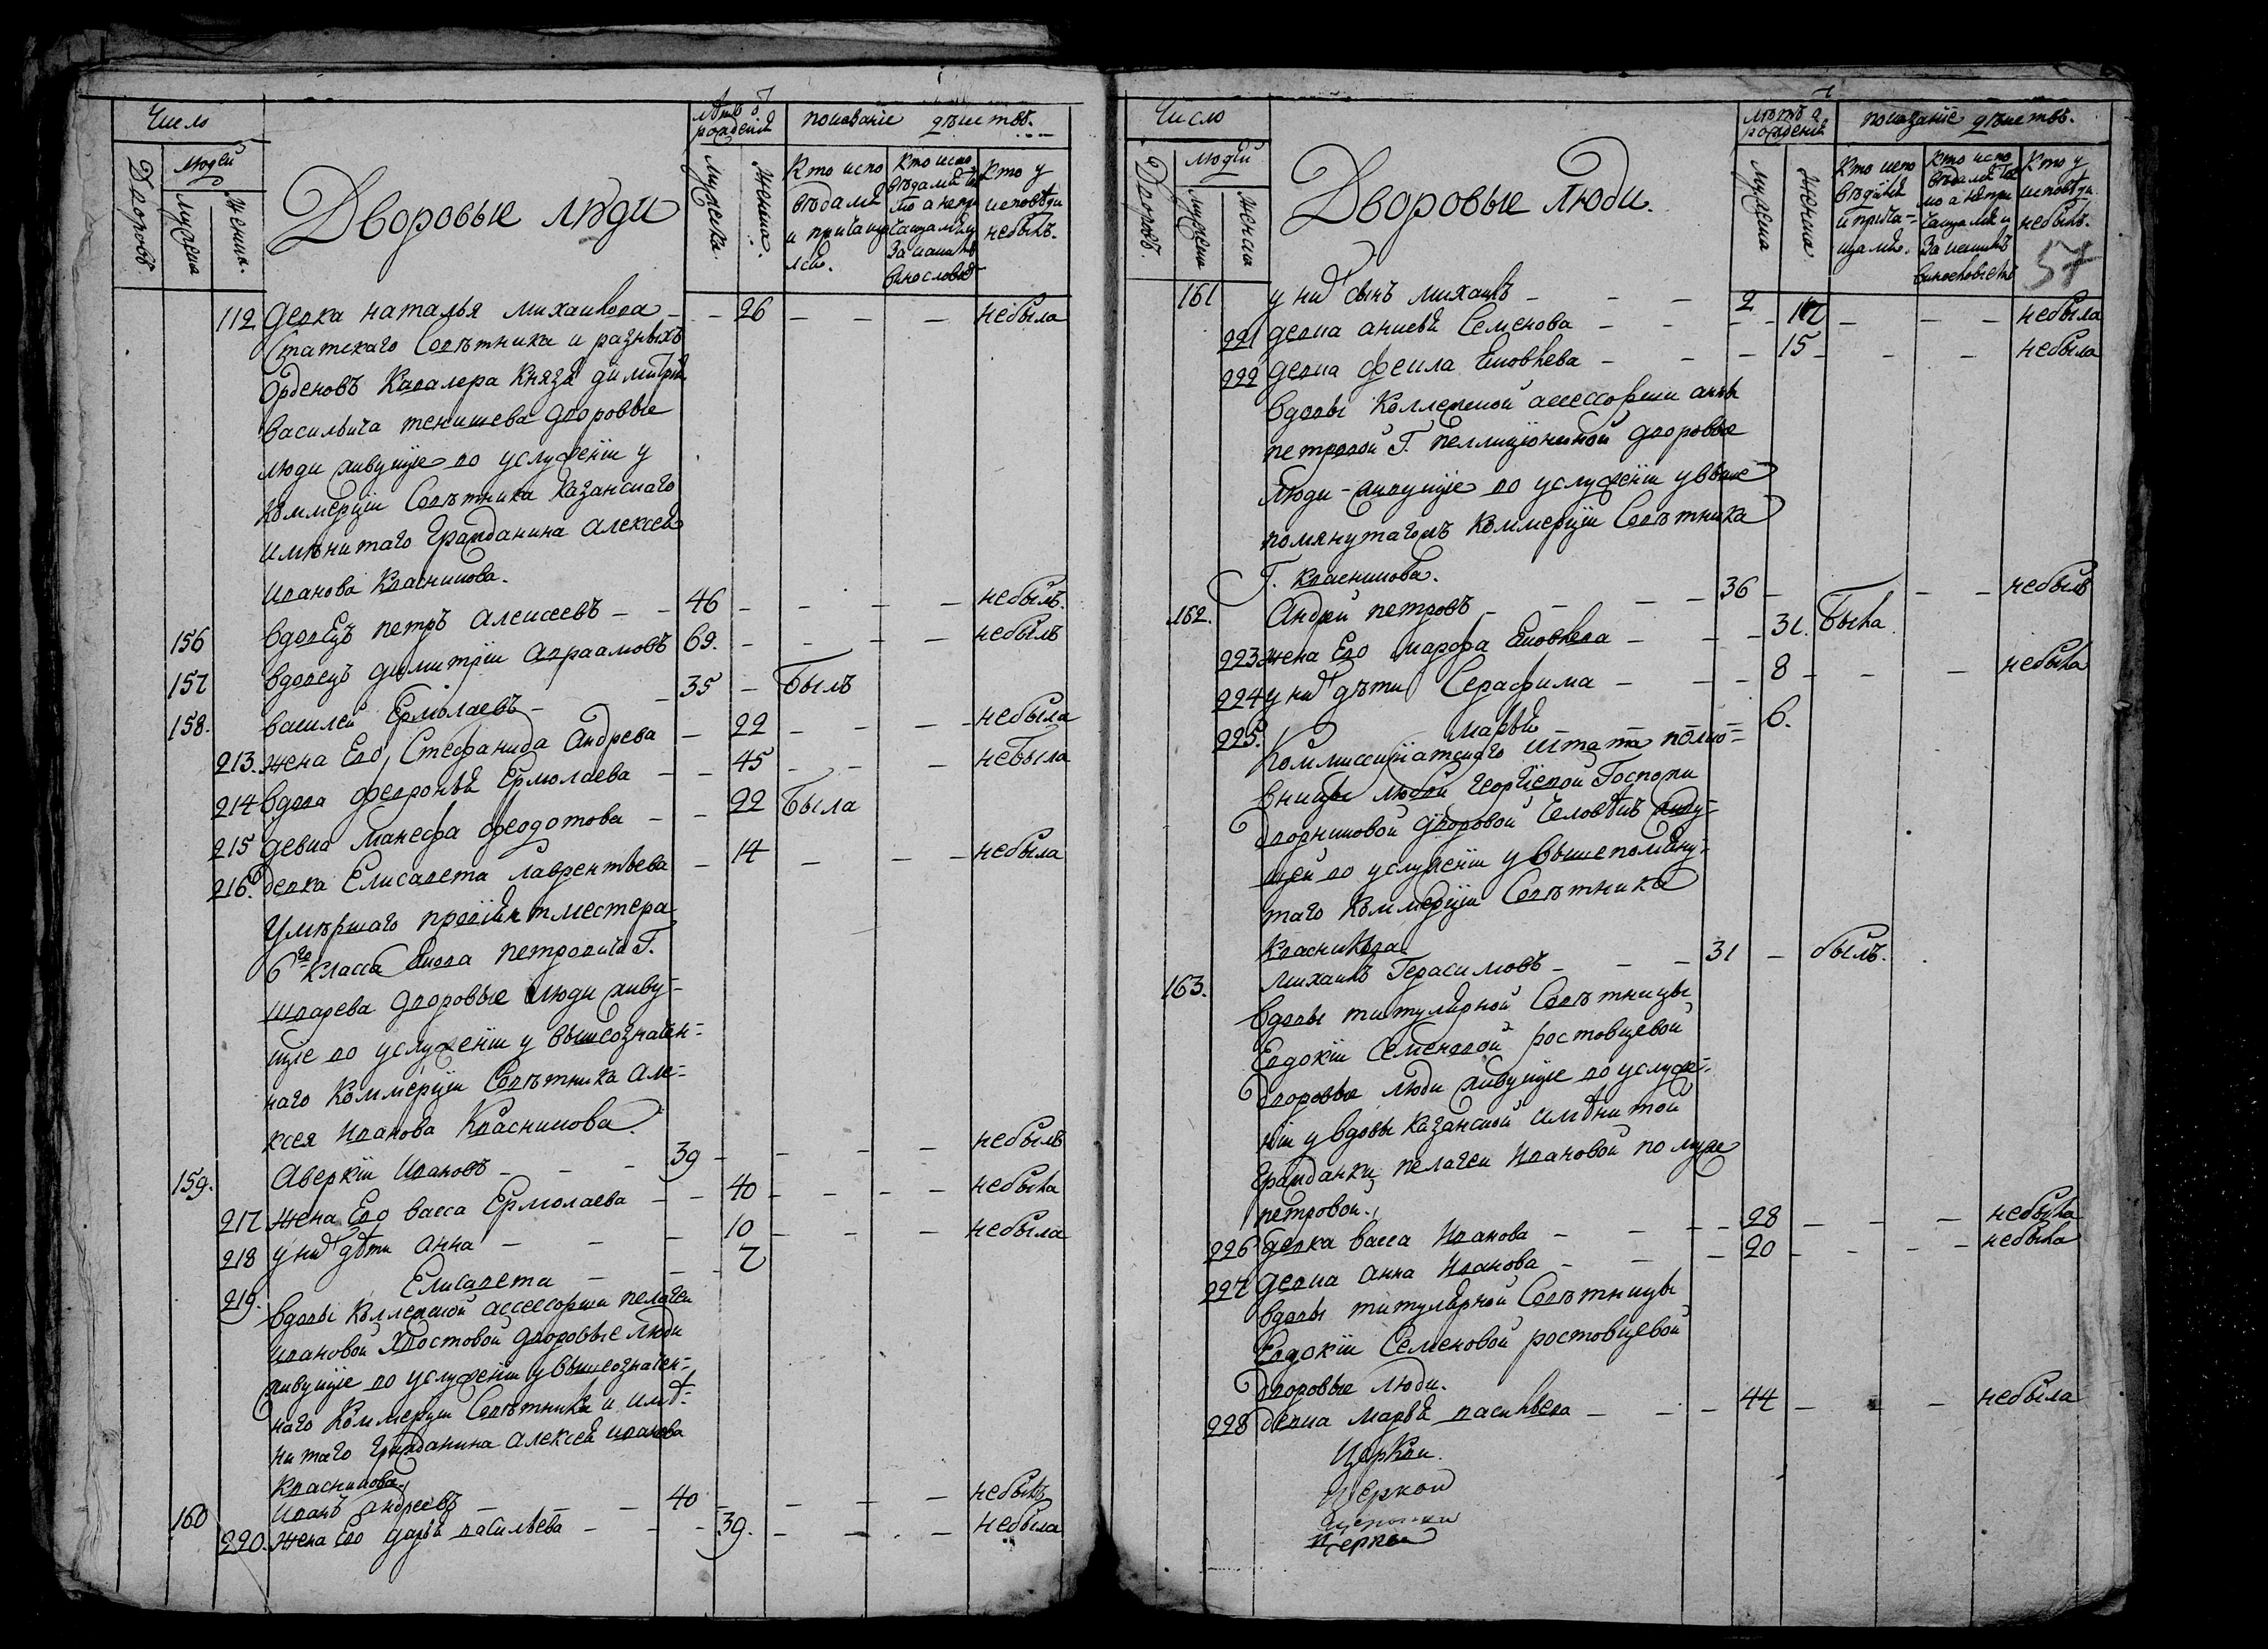 Число
лѣтъ ѿ рожденія
показаніе дѣйствъ.
Дворовъ.
людей
мужеска
женска.
Дворовые люди
мужеска.
женска.
Кто испо
вѣдались
и прича
лся.
небылъ.
112 девка наталья михаилова - - 26 - - - небыла
Статскаго Совѣтника и разныхъ
Орденовъ Кавалера Князя димитрія
васильича тенишева дворовые
люди живущие во услуженіи у
Коммерціи Совѣтника Казанскаго
имянитаго Гражданина Алексея
иванова Крашенинникова.
156 вдовецъ петръ алексеевъ - - 46 - - - - небылъ.
157 вдовецъ димитріи авраамовъ 69. - - - - небылъ
158. василеи Ермолаевъ - - 35 - былъ
213. жена Его Стефанида Андрева - 22 - - - - небыла
214 вдова февронья Ермолаева - - 45 - - - небыла
215 девка Манефа феодотова - - 22 была
216. девка Елисавета лаврентьева - 14 - - - небыла
Умершаго провіантместера
6го класса Якова петровича Г.
шварева дворовые люди живу-
щие во услуженіи у вышеозначен-
наго Коммерціи Совѣтника але-
ксея иванова Красникова.
159. Аверкіи Ивановъ - - - 39 - - - - небылъ
217 жена Его васса Ермолаева - - 40 - - - - небыла
218 у них дѣти анна - - - 10 - - - - небыла
219. Елисавета - - - 7
вдовы Коллежской ассесорши пелагеи
ивановой Хвостовой дворовые люди
живущіе во услуженіи у вышеозначен-
наго Коммерціи Совѣтника и имя-
нитаго Гражданина алексея иванова
Красникова.
160 Иванъ андреевъ - - - 40 - - - - небылъ
220. жена Его дарья васильева - - - 39. - - - - небыла
Число
лѣтъ ѿ рожденія
показаніе дѣйствъ.
Дворовъ.
людей
мужеска
женска
Дворовые люди.
мужеска
женска
Кто испо
вѣдались
и прича-
щались.
Кто у
исповѣди
небылъ.
57
161 у них сынъ михаилъ - - - 2
221 девка анисья Семенова - - - 17 - - - небыла
222 девка фекла Яковлева - - - 15 - - - небыла
вдовы Коллежской ассессорши анны
петровой Г. пеллиціониной дворовые
люди живущіе во услуженіи у выше
помянутагожъ Коммерціи Совѣтника
Г. Красникова.
162. Андрей петровъ - - - - 36 - - - небылъ
223 жена Его марфа Яковлева - - - 31. была
224 у них дѣти Серафима - - - 8 - - - небыла
225. марья - - - 6.
Коммиссаріатскаго штата полко-
вницы любви Георгіевой Госпожи
дворниковой дворовой человѣкъ живу-
щей во услуженіи у вышепомяну-
таго Коммерціи Совѣтника
Красникова
163. михаилъ Герасимовъ - - - 31 - былъ.
вдовы титулярной Совѣтницы
Евдокіи Семеновой ростовцевой
дворовые люди живущіе во услуже-
ніи у вдовы казанской имянитой
Гражданки пелагеи Ивановой по муже
петровой.
226 девка васса Иванова - - - 28 - - - небыла
227 девка анна Иванова - - - 20 - - - - небыла
вдовы титулярной Совѣтницы
Евдокіи Семеновой ростовцевой
дворовые люди.
228 девка марья васильева - - - 44 - - - небыла
Церкви.
Церкви
Церкви
Церкви